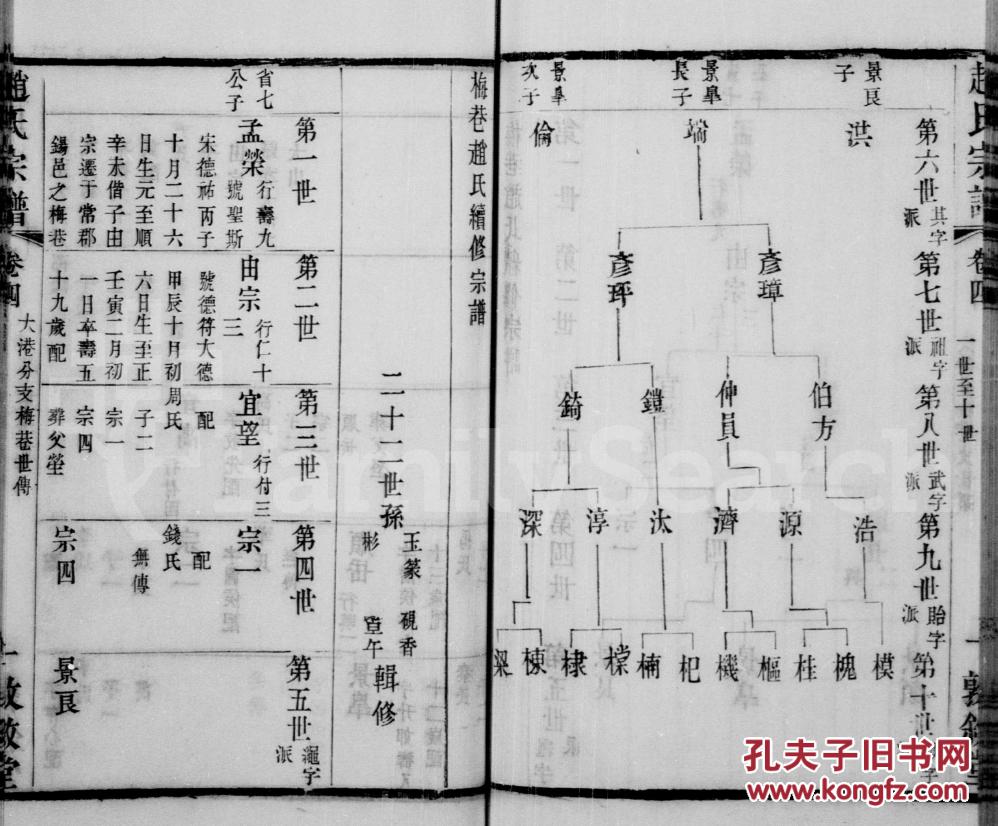 趙氏宗譜
卷四
一世至十世
一
第六世 其字派
第七世 祖字派
第八世 武字派
第九世 貽字派
第十世
字
景良子
洪
景臯長子
端
景臯次子
倫
彥璋
彥玶
伯方
仲員
鎧
錡
浩
源
濟
汰
淳
深
模
槐
桂
樞
機
杞
楠
棠
棣
棟
梁
梅巷趙氏續修宗譜
二十一世孫
玉篆 硯香
彬 萱午
輯修
第一世
第二世
第三世
第四世
第五世 繩字派
省七公子
孟榮 行壽九 號聖斯
宋德祐丙子
十月二十六
日生元至順
辛未偕子由
宗遷于常郡
錫邑之梅巷
由宗 行仁十三
號德符大德
甲辰十月初
六日生至正
壬寅二月初
一日卒壽五
十九歲配
周氏
子二
宗一
宗四
葬父塋
宜望 行付三
配
宗一
配
錢氏
無傳
宗四
景良
趙氏宗譜
卷四
大港分支梅巷世傳
一
敦敘堂
FamilySearch
孔夫子旧书网
www.kongfz.com